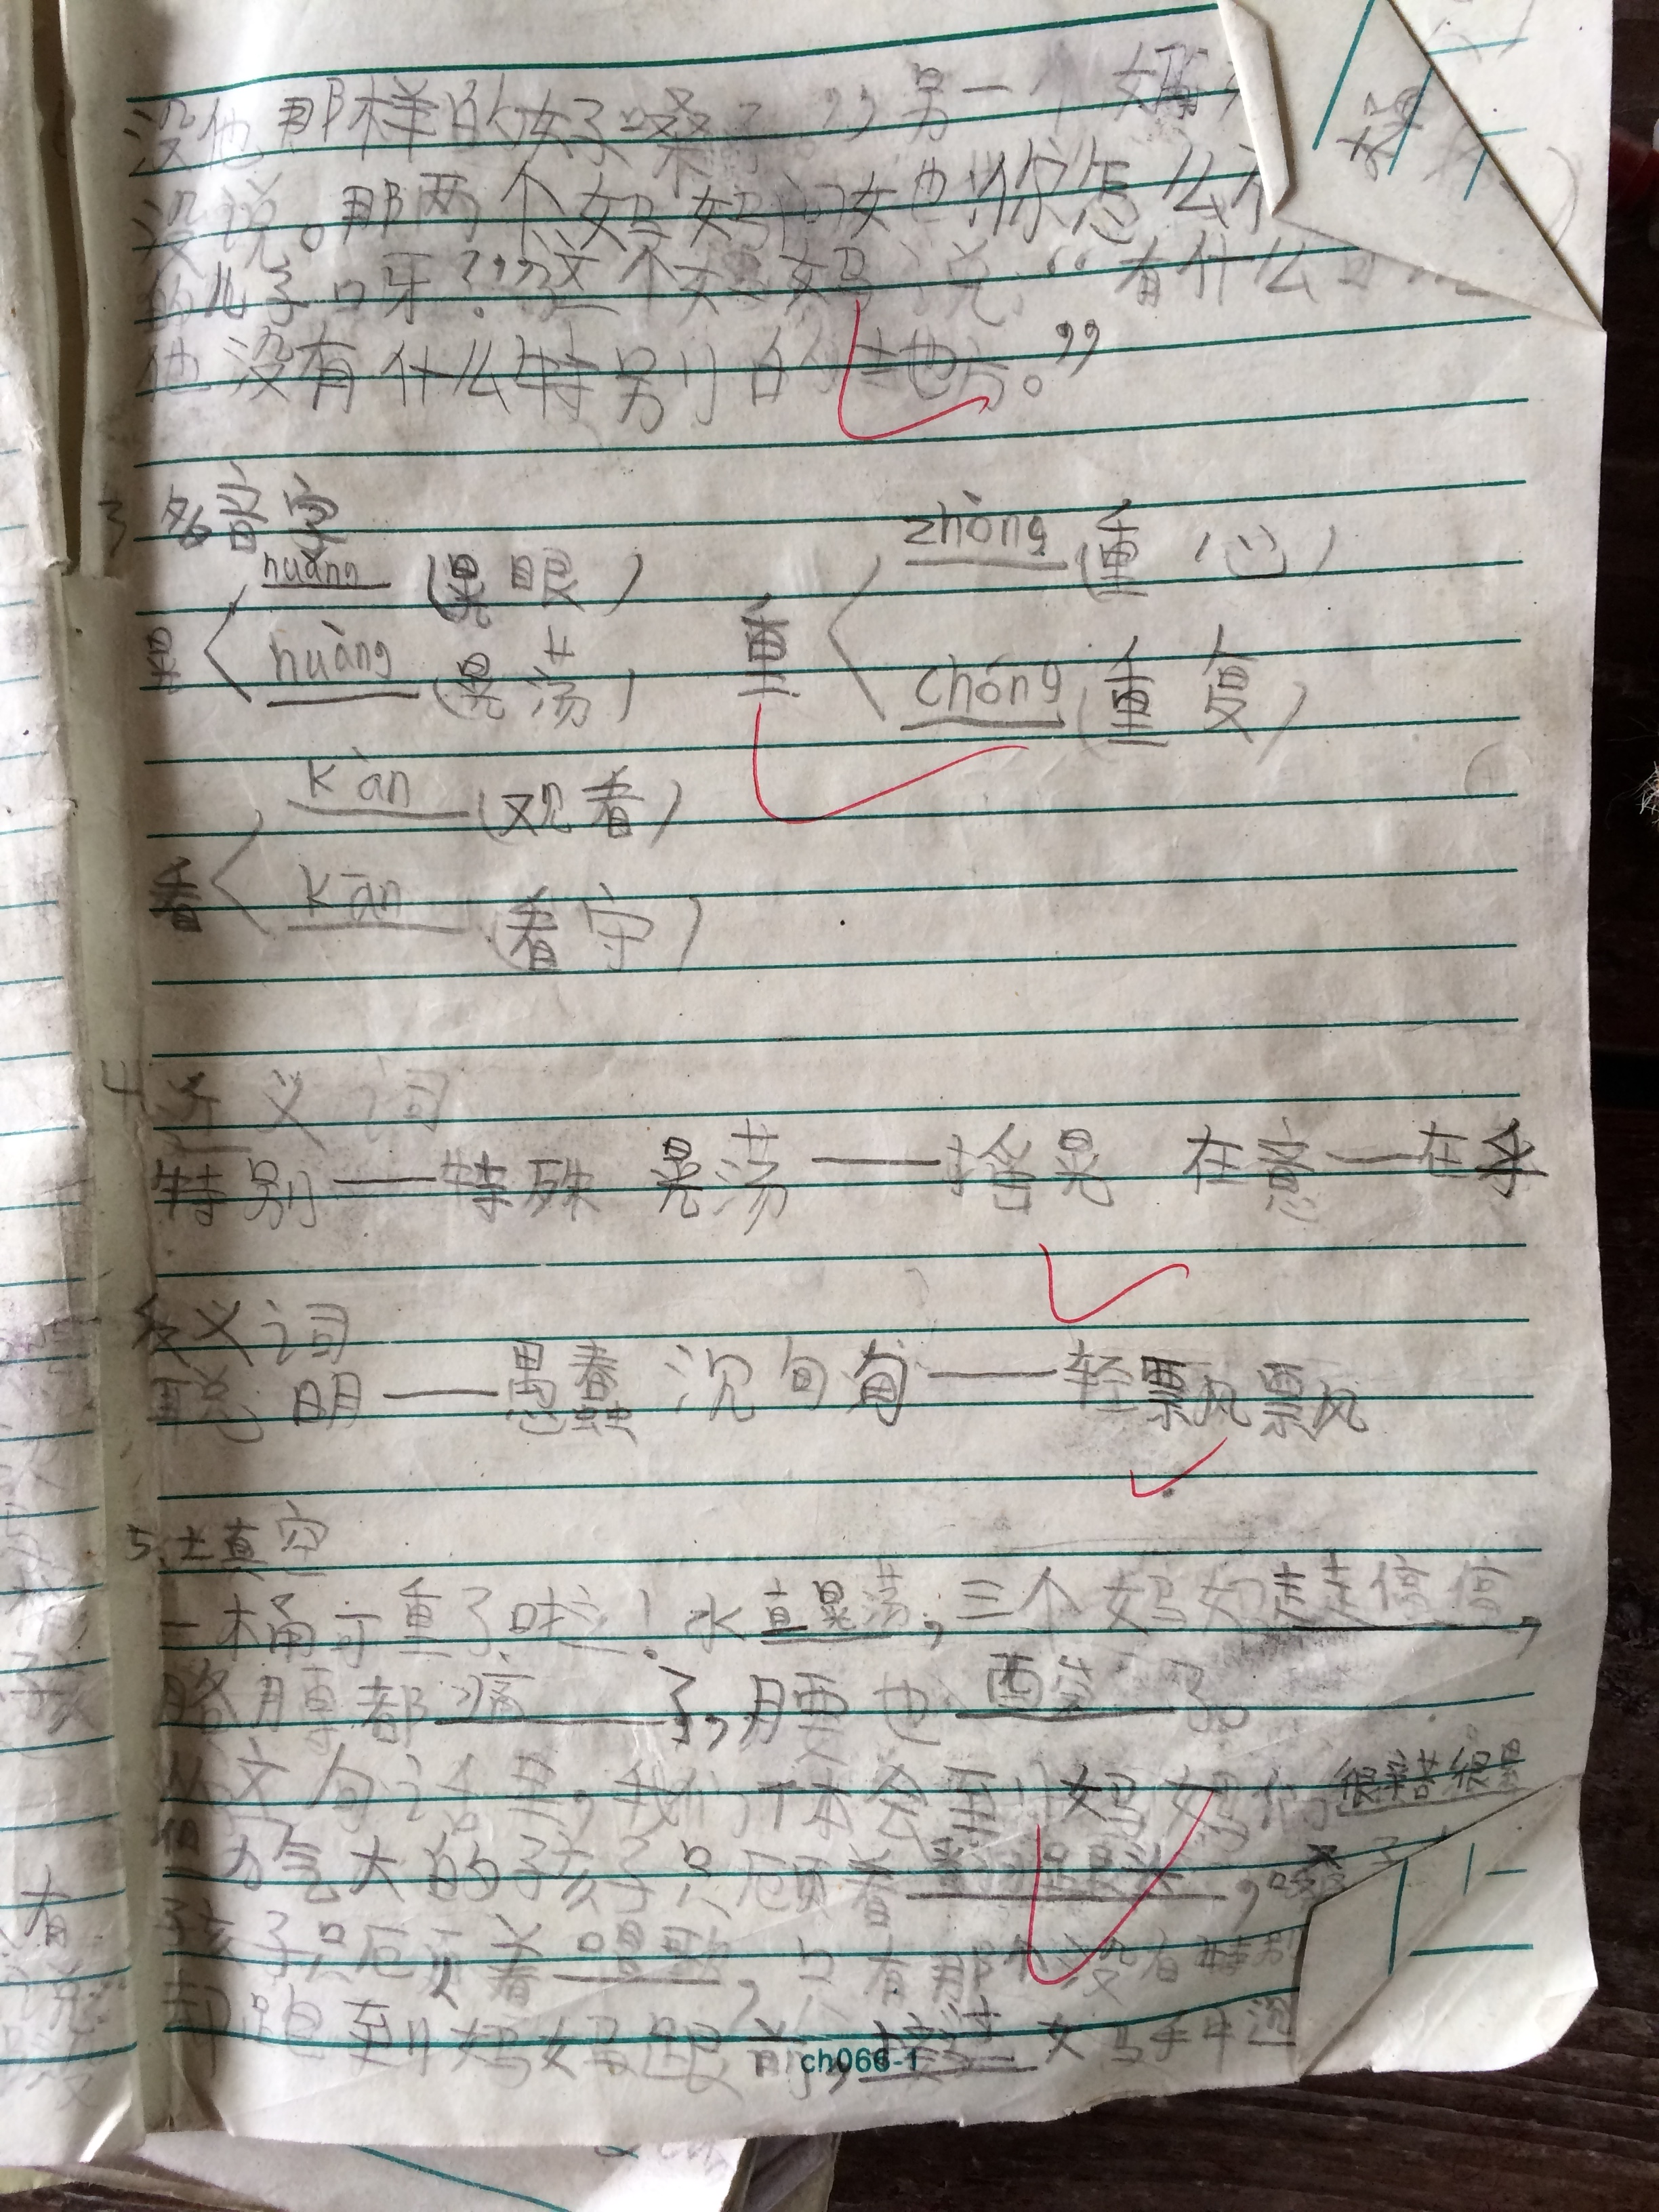 没他那样的好嗓子。”另一个妈
没说。那两个妈妈问她“你怎么不
的儿子呀？”这个妈妈说：“有什么
他没有什么特别的地方。”
3 多音字
晃 huǎng (晃眼)
huàng (晃荡)
重 zhòng (重心)
chóng (重复)
看 kàn (观看)
kān (看守)
4 近义词
特别——特殊 晃荡——摇晃 在意——在乎
反义词
聪明——愚蠢 沉甸甸——轻飘飘
5.填空
一桶可重了啦！水直晃荡，三个妈妈走走停停，
胳膊都痛了，腰也酸了。
从这句话里，我们体会到妈妈们很
力气大的孩子只顾着翻跟头，嗓子
孩子只顾着唱歌，只有那个没有特别
却跑到妈妈跟前，接过妈手中沉
ch066-1